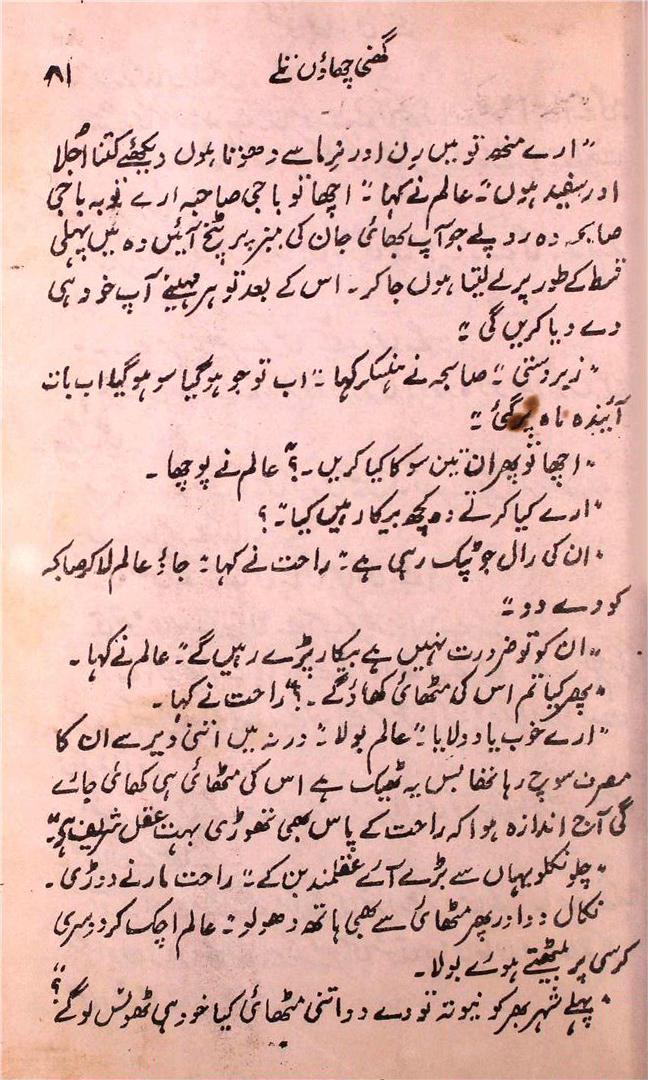 گھنی چھاؤں تلے
۸۱
"ارے منھ تو میں رن اور نرما سے دھوتا ہوں دیکھئے کتنا اُجلا
اور سفید ہوں" عالم نے کہا "اچھا تو باجی صاحبہ ارے توبہ باجی
صابحہ وہ روپے جو آپ بھائی جان کی میز پر پٹخ آئیں وہ میں پہلی
قسط کے طور پر لے لیتا ہوں جا کر۔ اس کے بعد تو ہر مہینے آپ خود ہی
دے دیا کریں گی"
"زبردستی" صابحہ نے ہنسکر کہا "اب تو جو ہو گیا سو ہو گیا اب بات
آئندہ ماہ پر گئی"
"اچھا تو پھر ان تین سو کا کیا کریں۔؟" عالم نے پوچھا۔
"ارے کیا کرتے وہ کچھ بیکار ہیں کیا"؟
"ان کی رال جو ٹپک رہی ہے" راحت نے کہا "جاؤ عالم لا کر صابحہ
کو دے دو"
"ان کو تو ضرورت نہیں ہے بیکار پڑے رہیں گے" عالم نے کہا۔
"پھر کیا تم اس کی مٹھائی کھاؤ گے۔؟" راحت نے کہا۔
"ارے خوب یاد دلایا" عالم بولا "ورنہ میں اتنی دیر سے ان کا
مصرف سوچ رہا تھا بس یہ ٹھیک ہے اس کی مٹھائی ہی کھائی جائے
گی آج اندازہ ہوا کہ راحت کے پاس بھی تھوڑی بہت عقل شریف ہے"
"چلو نکلو یہاں سے بڑے آئے عقلمند بن کے" راحت مارنے دوڑی۔
نکال دو اور پھر مٹھائی سے بھی ہاتھ دھو لو" عالم اچک کر دوسری
کرسی پر بیٹھتے ہوئے بولا۔
"پہلے شہر بھر کو نیوتہ تو دے دو اتنی مٹھائی کیا خود ہی ٹھونس لو گے؟"